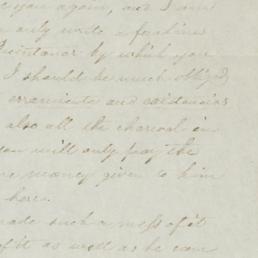 you again, and I am
only write a few lines
by which you
I should be much obliged
and existencies
also all the charcoal in
you will only pay the
money given to him
here.
made such a mess of it
of it as well as he can